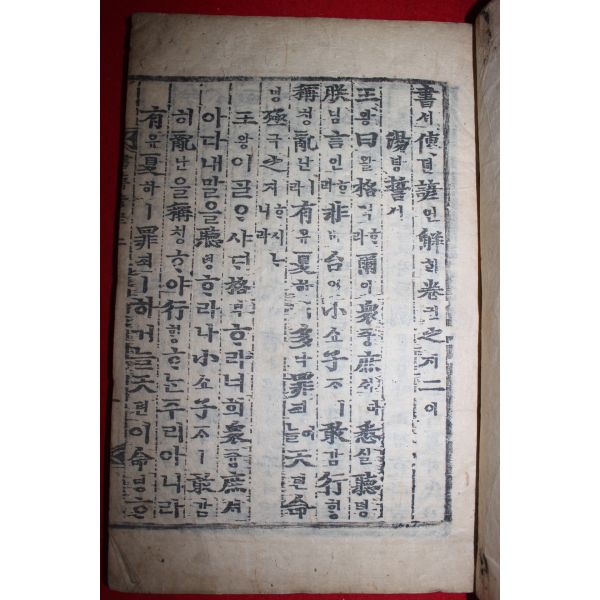 書셔傳뎐諺언解ᄒᆡ卷권之지二이
湯탕誓셔
王왕曰왈格격ᄒᆞ라爾이衆즁庶셔아悉실聽텽
朕딤言언ᄒᆞ라非비台이小쇼子ᄌᆞㅣ敢감行ᄒᆡᆼ
稱칭亂난이라有유夏하ㅣ多다罪죄어ᄂᆞᆯ天텬命
명殛극之지ᄒᆞ시ᄂᆞ니라
王왕이ᄀᆞᆯᄋᆞ샤ᄃᆡ格격ᄒᆞ라너희衆즁庶셔
아다내말을聽텽ᄒᆞ라나小쇼子ᄌᆞㅣ敢감
히亂난을稱칭ᄒᆞ야行ᄒᆡᆼᄒᆞᄂᆞᆫ주리아니라
有유夏하ㅣ罪죄ㅣ하거늘天텬이命명ᄒᆞ